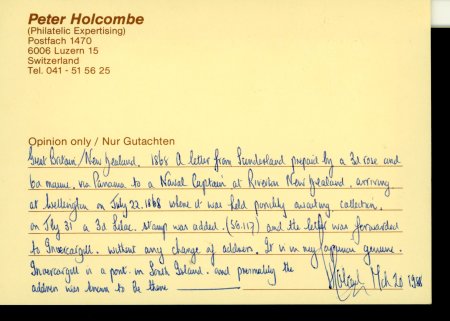 Peter Holcombe
(Philatelic Expertising)
Postfach 1470
6006 Luzern 15
Switzerland
Tel. 041 - 51 56 25
Opinion only / Nur Gutachten
Great Britain / New Zealand. 1868 A letter from Sunderland prepaid by a 3d rose and
6d mauve. via Panama to a Naval Captain at Riverton New Zealand, arriving
at Wellington on July 22. 1868 where it was held possibly awaiting collection.
on July 31 a 3d lilac. stamp was added. (SG.117) and the letter was forwarded
to Invercargill. without any change of address. It is in my opinion genuine.
Invercargill is a port. in South Island. and presumably the
address was known to be there
Mch 20 1988